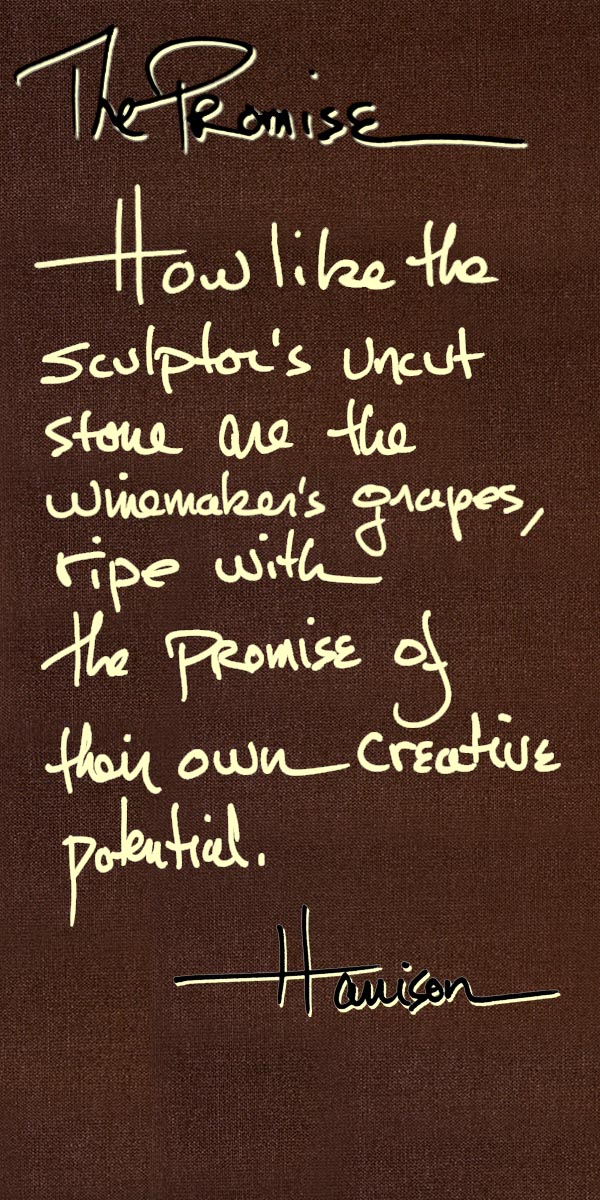 The Promise
How like the
sculptor's uncut
stone are the
winemaker's grapes,
ripe with
the promise of
their own creative
potential.
Harrison